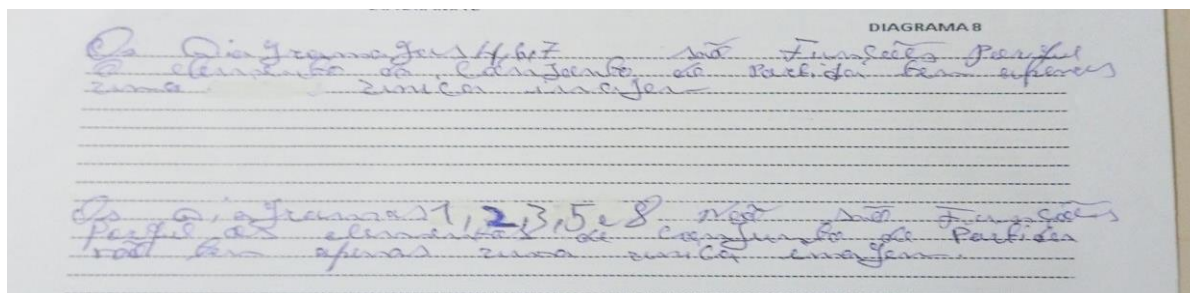 DIAGRAMA 8
Os Diagramas 4,6e7 são Funções Porque
o elemento do Conjunto de Partida tem apenas
uma única imagem
Os Diagramas 1,2,3,5e8 Não são Funções
Porque os elementos de conjunto de Partida
não tem apenas uma única imagem.